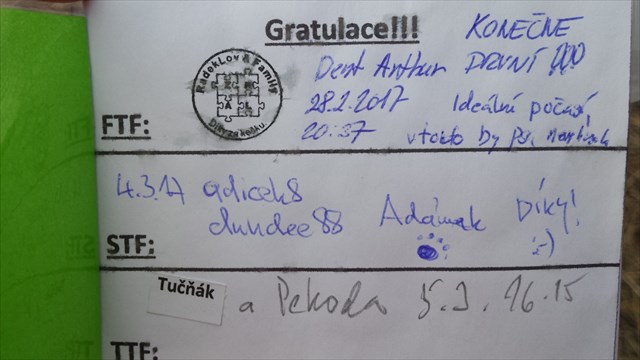 Gratulace!!!
KONEČNE
PRVNÍ
RadekLov & Family
A L
Díky za kešku
Dent Arthur
28.2.2017
20:37
Ideální počasí,
v tohto by psa
FTF:
4.3.17 adicek8
dundee88
Adámek
Díky!
:-)
STF:
Tučňák
a Pekoda 5.3. 16:15
TTF: